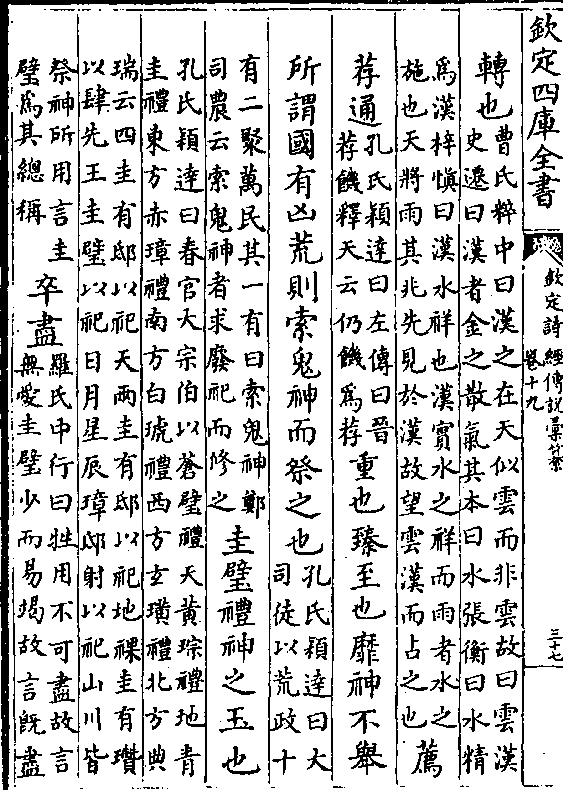 欽定四庫全書
欽定詩經傳說彙纂
卷十九
三十七
轉也曹氏粹中曰漢之在天似雲而非雲故曰雲漢
史遷曰漢者金之散氣其本曰水張衡曰水精
為漢梓慎曰漢水祥也漢實水之祥而雨者水之
施也天將雨其兆先見於漢故望雲漢而占之也薦
荐通孔氏穎達曰左傳曰晉
荐饑釋天云仍饑為荐重也臻至也靡神不舉
所謂國有凶荒則索鬼神而祭之也孔氏穎達曰大
司徒以荒政十
有二聚萬民其一有曰索鬼神鄭
司農云索鬼神者求廢祀而修之圭璧禮神之玉也
孔氏穎達曰春官大宗伯以蒼璧禮天黄琮禮地青
圭禮東方赤璋禮南方白琥禮西方玄璜禮北方典
瑞云四圭有邸以祀天兩圭有邸以祀地祼圭有瓚
以肆先王圭璧以祀日月星辰璋邸射以祀山川皆
祭神所用言圭
璧為其總稱卒盡羅氏中行曰牲用不可盡故言
無愛圭璧少而易竭故言既盡